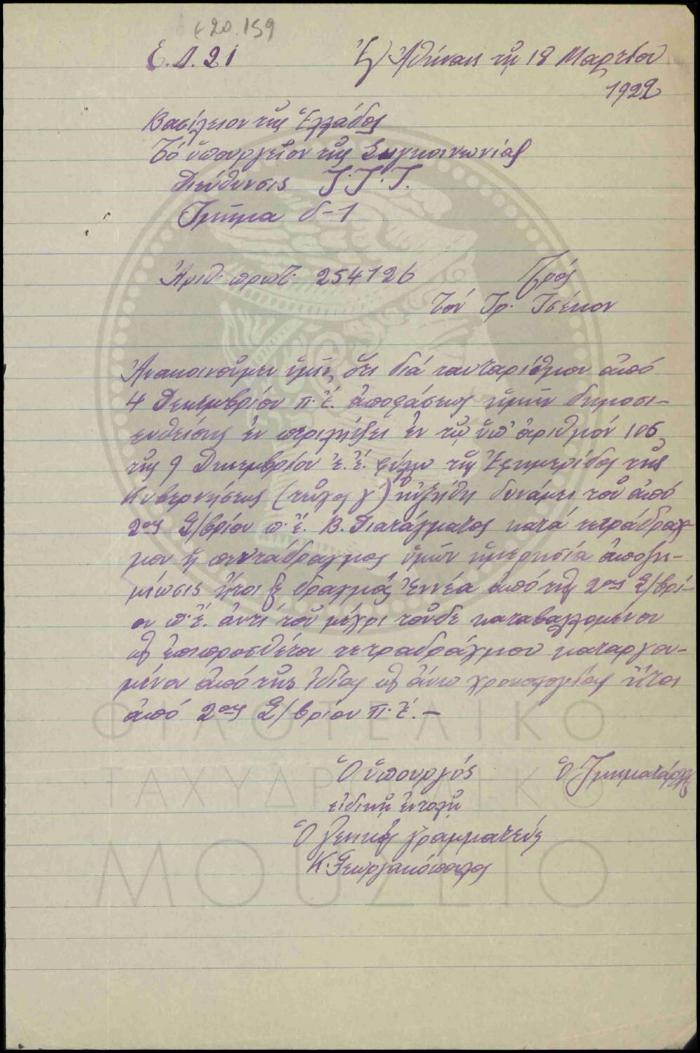 ε20.159
Ε.Δ.21 Ἐν Ἀθήναις τῇ 18 Μαρτίου
1922
Βασίλειον τῆς Ἑλλάδος
Τό ὑπουργεῖον τῆς Συγκοινωνίας
Διεύθυνσις Τ.Τ.Τ.
Τμῆμα δ-1
Ἀριθ. πρωτ. 254126 Πρός
τόν Γρ. Τσέκον
Ἀνακοινοῦμεν ὑμῖν, ὅτι διά ταυταρίθμου ἀπό
4 Δεκεμβρίου π.ἔ. ἀποφάσεως ἡμῶν δημοσι-
ευθείσης ἐν περιλήψει ἐν τῷ ὑπ' ἀριθμόν 106
τῆς 9 Δεκεμβρίου ἔ.ἔ. φύλλῳ τῆς Ἐφημερίδος τῆς
Κυβερνήσεως (τεῦχος γ) ηὐξήθη δυνάμει τοῦ ἀπό
2ας Σ/βρίου π.ἔ. Β. Διατάγματος κατά τετράδραχ-
μον ἡ πεντάδραχμος ὑμῶν ἡμερησία ἀποζη-
μίωσις ἤτοι δραχμάς ἐννέα ἀπό τῆς 2ας Σ/βρί-
ου π.ἔ. ἀντί τοῦ μέχρι τοῦδε καταβαλλομένου
ὡς ἐπιπροσθέτου τετραδράχμου καταργου-
μένου ἀπό τῆς ἰδίας ὡς ἄνω χρονολογίας ἤτοι
ἀπό 2ας Σ/βρίου π.ἔ.—
Ὁ ὑπουργός Ὁ Τμηματάρχης
εἰδικῇ ἐντολῇ
Ὁ γενικός γραμματεύς
Κ. Γεωργακόπουλος
ΦΙΛΟΤΕΛΙΚΟ
ΤΑΧΥΔΡΟΜΙΚΟ
ΜΟΥΣΕΙΟ